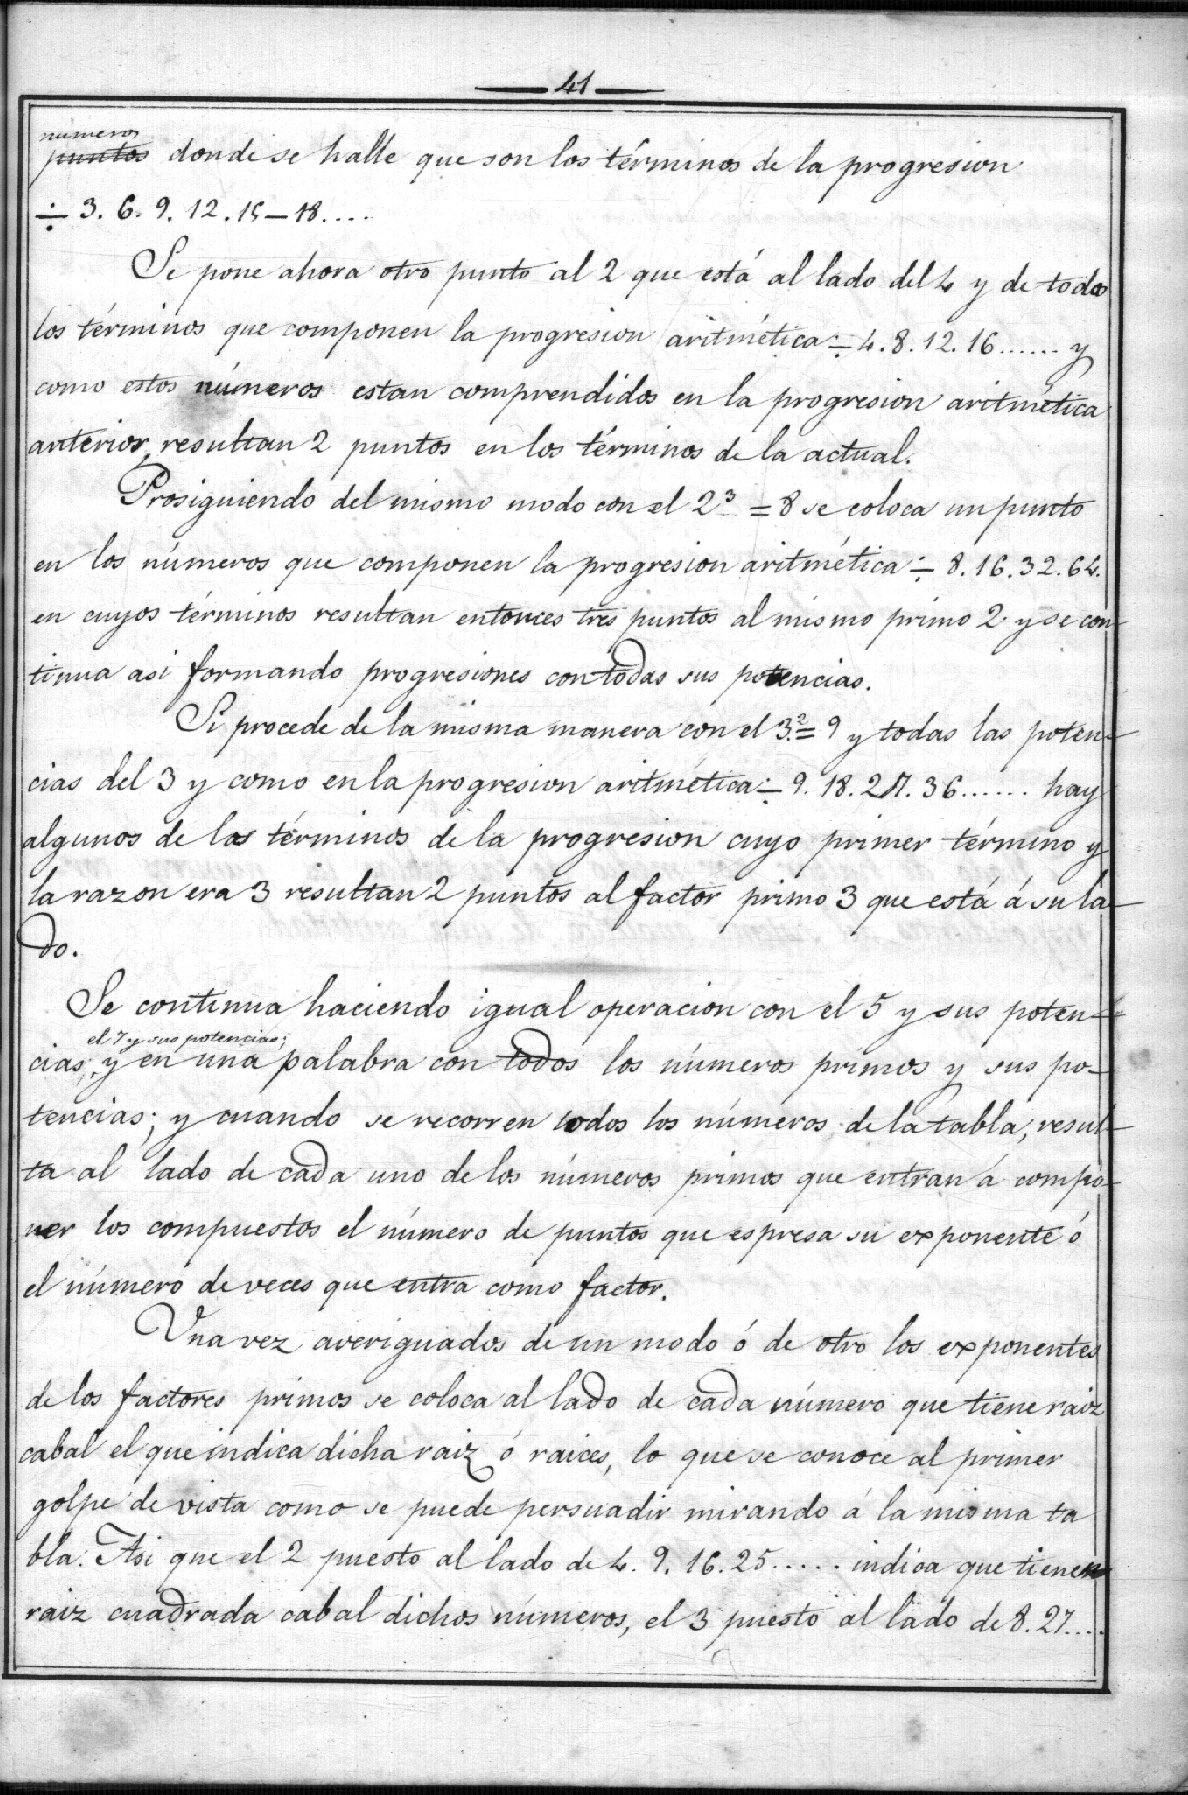 41
numeros
puntos donde se halle que son los términos de la progresion
÷ 3. 6. 9. 12. 15 — 18....
Se pone ahora otro punto al 2 que está al lado del 4 y de todos
los términos que componen la progresion aritmética ÷ 4. 8. 12. 16...... y
como estos números estan comprendidos en la progresion aritmética
anterior, resultan 2 puntos en los términos de la actual.
Prosiguiendo del mismo modo con el 2³ = 8 se coloca un punto
en los números que componen la progresion aritmética ÷ 8. 16. 32. 64.
en cuyos términos resultan entonces tres puntos al mismo primo 2 y se con-
tinua asi formando progresiones con todas sus potencias.
Se procede de la misma manera con el 3² = 9 y todas las poten-
cias del 3 y como en la progresion aritmética ÷ 9. 18. 27. 36...... hay
algunos de los términos de la progresion cuyo primer término y
la razon era 3 resultan 2 puntos al factor primo 3 que está á su la-
do.
Se continua haciendo igual operacion con el 5 y sus poten-
el 7 y sus potencias;
cias; y en una palabra con todos los números primos y sus po-
tencias; y cuando se recorren todos los números de la tabla, resul-
ta al lado de cada uno de los números primos que entran á compo-
ner los compuestos el número de puntos que espresa su exponente ó
el número de veces que entra como factor.
Una vez averiguados de un modo ó de otro los exponentes
de los factores primos se coloca al lado de cada número que tiene raiz
cabal el que indica dicha raiz ó raices, lo que se conoce al primer
golpe de vista como se puede persuadir mirando á la misma ta
bla. Asi que el 2 puesto al lado de 4. 9. 16. 25..... indica que tienen
raiz cuadrada cabal dichos números, el 3 puesto al lado de 8. 27....